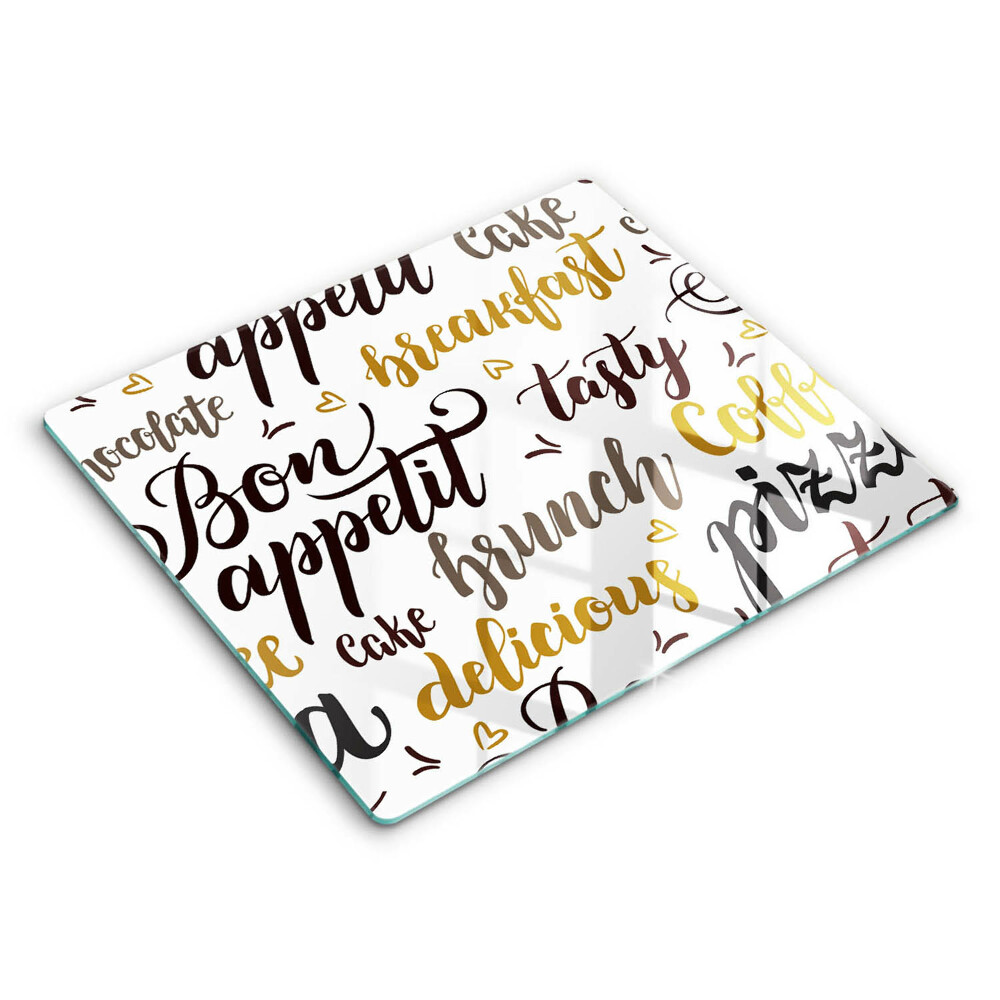 cake
appetit
breakfast
chocolate
tasty
Coff
Bon
appetit
brunch
pizz
ee
cake
delicious
a